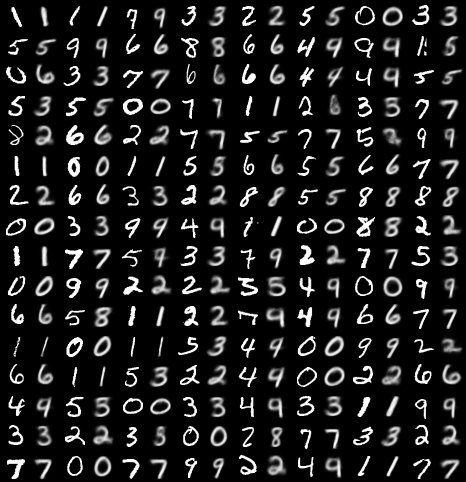 1 1 1 1 7 9 3 3 2 2 5 5 0 0 3 3
5 5 9 9 6 6 8 8 6 6 4 9 9 9 1 5
0 6 3 3 7 7 6 6 6 6 4 4 4 9 5 5
5 3 5 5 0 0 7 7 1 1 2 6 3 3 7 7
8 2 6 6 2 2 7 7 5 5 7 7 5 2 9 9
1 1 0 0 1 1 5 5 6 6 5 5 6 6 7 7
2 2 6 6 3 3 2 2 8 8 5 5 8 8 8 8
0 0 3 3 9 9 4 9 1 1 0 0 8 8 2 2
1 1 7 7 5 9 3 3 7 9 2 2 7 7 5 3
0 0 9 9 2 2 2 2 5 5 4 9 0 0 9 9
6 6 5 8 1 1 2 2 7 9 4 9 6 6 7 7
1 1 0 0 1 1 5 3 4 9 0 0 9 9 2 2
6 6 1 1 5 3 2 2 4 9 0 0 2 2 6 6
4 9 5 5 0 0 3 3 4 9 3 3 1 1 9 9
3 3 2 2 3 3 0 0 2 8 7 7 3 3 2 2
7 7 0 0 7 7 9 9 2 2 4 9 1 1 7 7